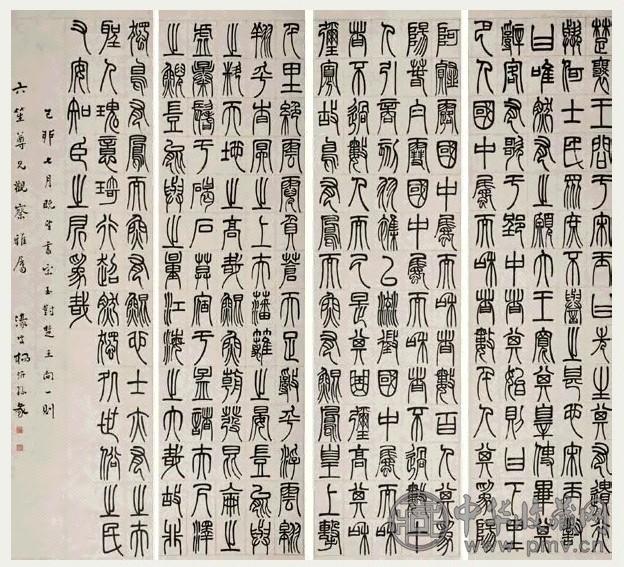 楚襄王問于宋玉曰先生其有遺行
與何士民眾庶不譽之甚也宋玉對
曰唯然有之願大王寬其辠使畢其
辭客有歌于郢中者其始則曰下里
巴人國中屬而和者數千人其為陽
阿薤露國中屬而和者數百人其為
陽春白雪國中屬而和者不過數十
人引商刻羽雜以流徵國中屬而和
者不過數人而已是其曲彌高其和
彌寡故鳥有鳳而魚有鯤鳳皇上擊
九里絕雲霓負蒼天足亂乎浮雲翱
翔乎杳冥之上夫藩籬之鷃豈能與
之料天地之高哉鯤魚朝發昆侖之
虛暴鬐于碣石莫宿于孟諸夫尺澤
之鯢豈能與之量江海之大哉故非
獨鳥有鳳而魚有鯤也士亦有之夫
聖人瑰意琦行超然獨處世俗之民
又安知臣之所為哉
己卯七月晚坐書宋玉對楚王問一則
六笙尊兄觀察雅屬 濠叟楊沂孫篆
中华收藏网
www.pmv.cn